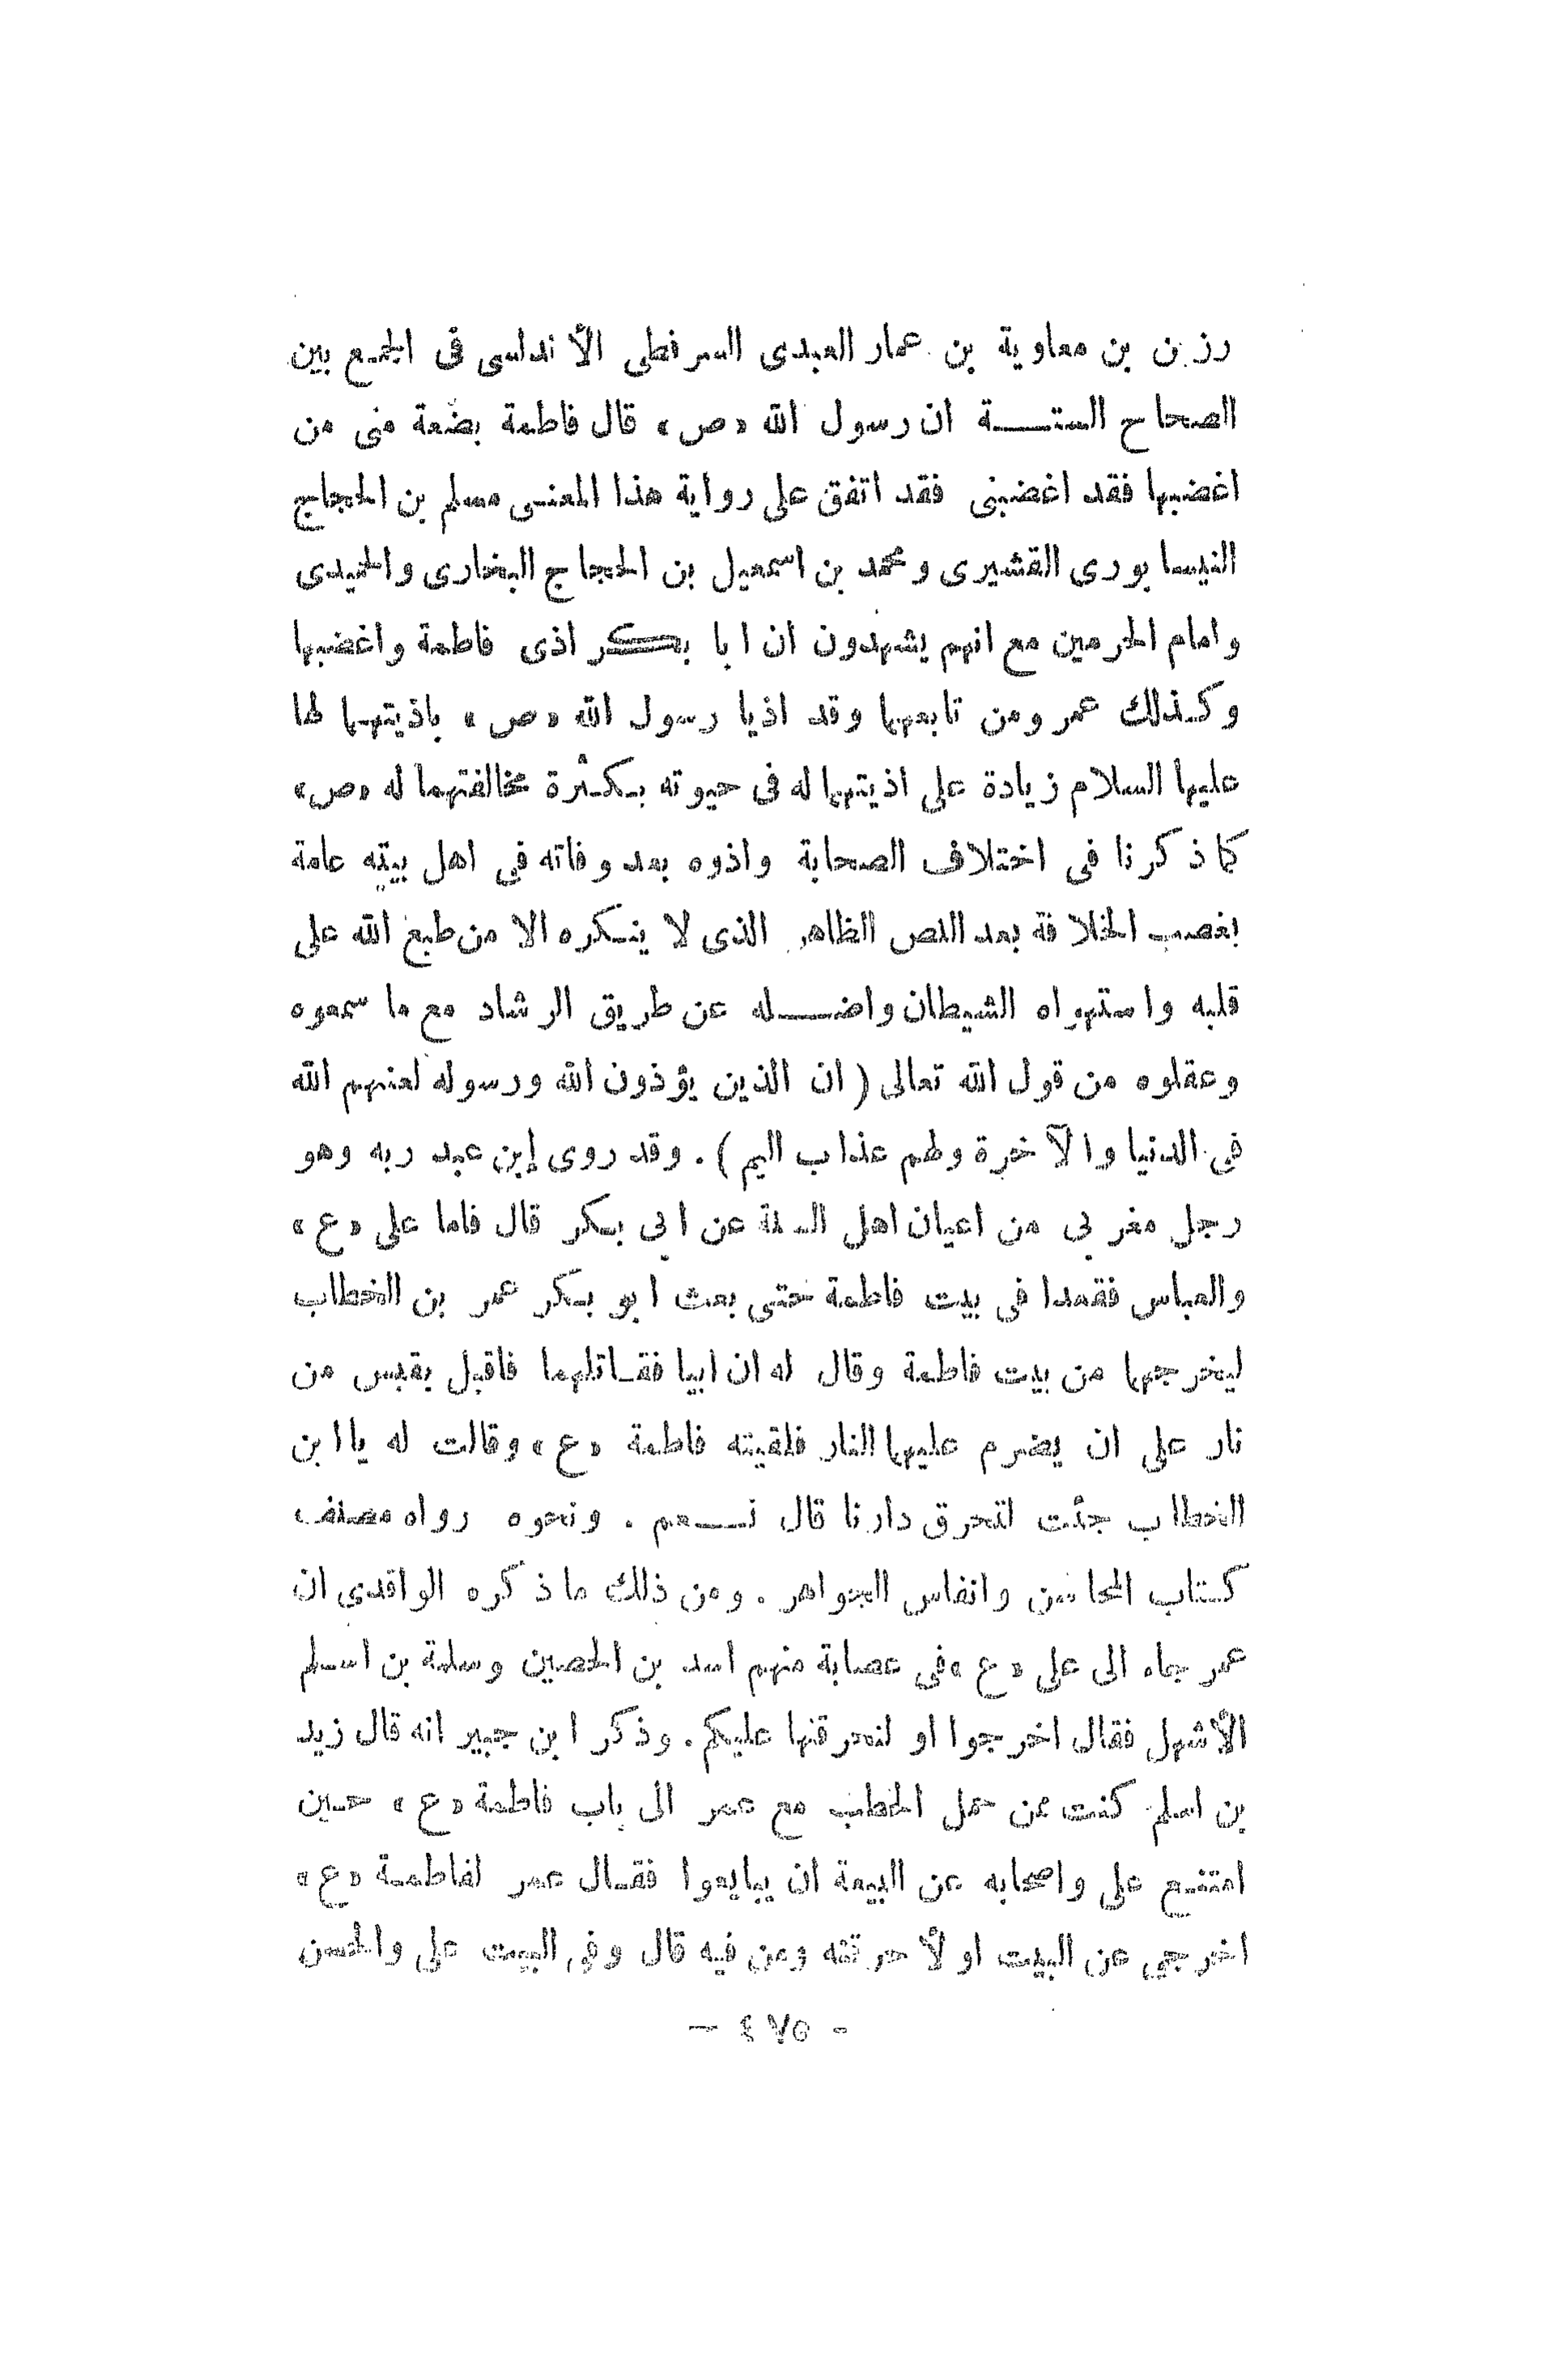 رزين بن معاوية بن عمار العبدى السرقطى الأندلسى فى الجمع بين
الصحاح الستة ان رسول الله «ص» قال فاطمة بضعة منى من
اغضبها فقد اغضبنى فقد اتفق على رواية هذا المعنى مسلم بن الحجاج
النيسابورى القشيرى ومحمد بن اسمعيل بن الحجاج البخارى والحميدى
وامام الحرمين مع انهم يشهدون ان ابا بكر اذى فاطمة واغضبها
وكذلك عمر ومن تابعهما وقد اذيا رسول الله «ص» باذيتهما لها
عليها السلام زيادة على اذيتهما له فى حيوته بكثرة مخالفتهما له «ص»
كما ذكرنا فى اختلاف الصحابة واذوه بعد وفاته فى اهل بيته عامة
بغصب الخلافة بعد النص الظاهر الذى لا ينكره الا من طبع الله على
قلبه واستهواه الشيطان واضله عن طريق الرشاد مع ما سمعوه
وعقلوه من قول الله تعالى ( ان الذين يؤذون الله ورسوله لعنهم الله
فى الدنيا والآخرة ولهم عذاب اليم ) . وقد روى إبن عبد ربه وهو
رجل مغربى من اعيان اهل السنة عن ابى بكر قال فاما على «ع»
والعباس فقعدا فى بيت فاطمة حتى بعث ابو بكر عمر بن الخطاب
ليخرجهما من بيت فاطمة وقال له ان ابيا فقاتلهما فاقبل بقبس من
نار على ان يضرم عليهما النار فلقيته فاطمة «ع» وقالت له يا ابن
الخطاب جئت لتحرق دارنا قال نعم . ونحوه رواه مصنف
كتاب المحاسن وانفاس الجواهر . ومن ذلك ما ذكره الواقدى ان
عمر جاء الى على «ع» فى عصابة منهم اسد بن الحصين وسلمة بن اسلم
الأشهل فقال اخرجوا او لنحرقنها عليكم . وذكر ابن جبير انه قال زيد
بن اسلم كنت ممن حمل الحطب مع عمر الى باب فاطمة «ع» حين
امتنع على واصحابه عن البيعة ان يبايعوا فقال عمر لفاطمة «ع»
اخرجي عن البيت او لأحرقنه ومن فيه قال وفى البيت على والحسن
- ٤٧٥ -